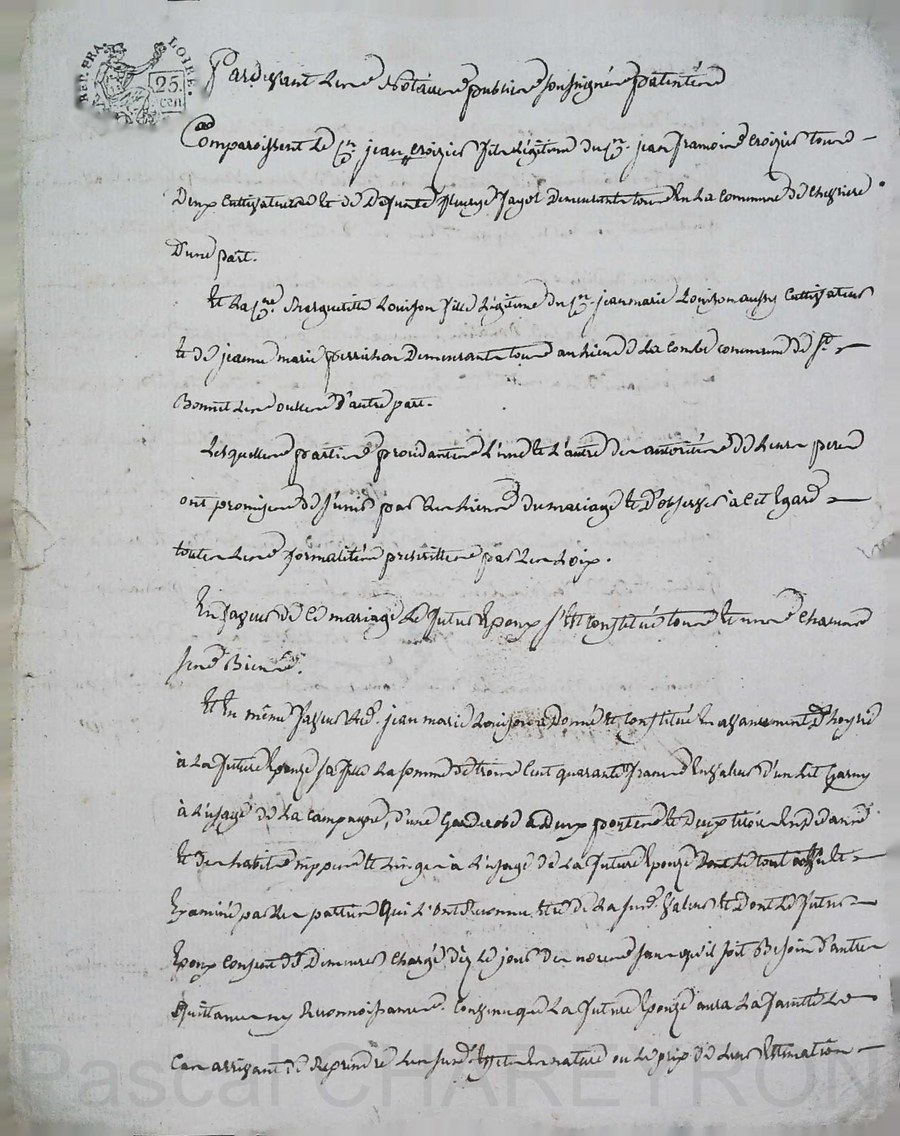 REP. FRA. LOIRE.
25. cen
Pardevant Les Notaires publics soussignés patentés
Comparoissent Le Cn. jean croizier fils Légitime du Cn. jean francois croizier tous
Deux Cultivateurs et de Defunte fleurye fayol Demeurants tous En La Commune de chevriere
D'une part.
Et La Cne. Marguerite Louison fille Légitime du Cn. jean marie Louison aussy Cultivateur
Et de jeanne marie perrichon Demeurants tous au lieu de La Combe commune de St.
Bonnet Les oulles D'autre part.
Lesquelles parties procédantes L'une Et L'autre des autorités de Leurs peres
ont promises de s'unir par Les Liens du mariage Et D'observer à cet Egard
toutes Les formalités prescrittes par Les Loix.
En faveur de Ce mariage Le futur Epoux s'est Constitué tous Et uns Chacuns
ses Biens.
Et En même faveur led. jean marie Louison a Donné Et Constitué En avancement D'hoyrie
à La future Epouze sa fille La somme de trois Cent quarante francs En valeur d'un Lit Garny
à L'usage de La Campagne, d'une Garderobe a Deux portes Et Deux tiroirs
Et des habits nippes Et Linges à L'usage de La future Epouze Dont Le tout a été vu Et
Examiné par Les parties qui L'ont Reconnu Etre de La susd. valeur Et Dont Le futur
Epoux Consent de Demeurer Chargé dèz Le jour des noces sans qu'il soit Besoin d'autre
Quittance ny Reconnoissance. Convenu que La future Epouze aura La faculté Le
Cas arrivant de Reprendre Les susd. Effets En nature ou Le prix de Leur Estimation
Pascal CHAREYRON